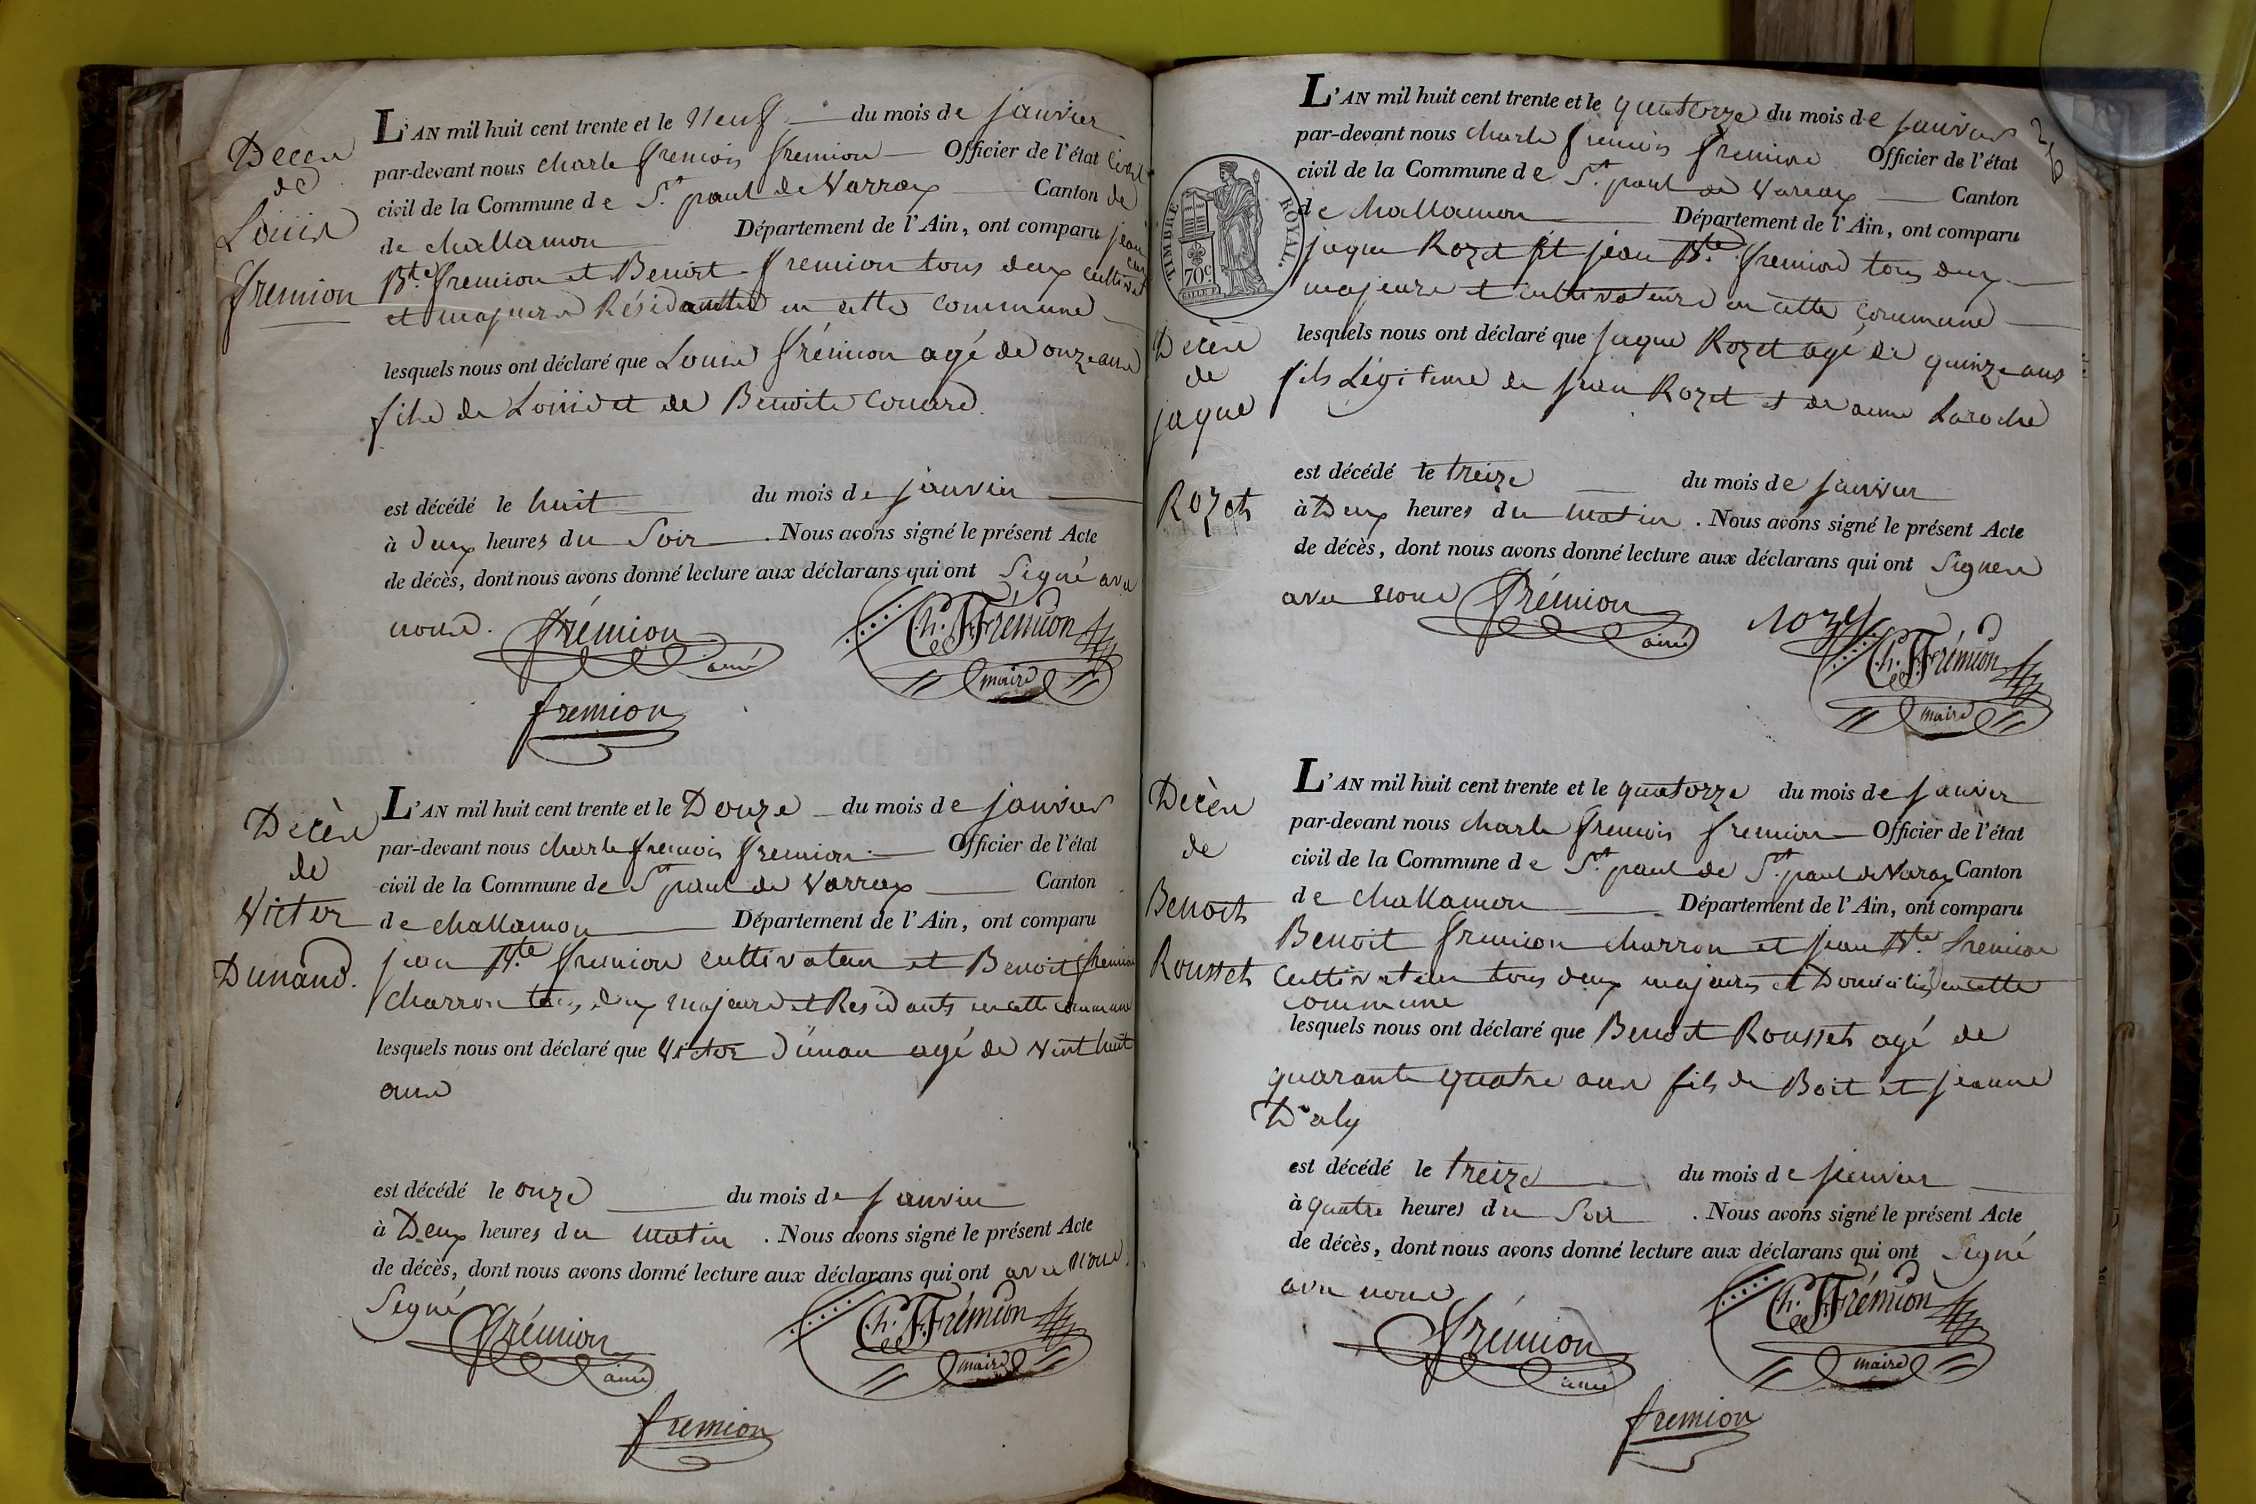 Décès
de
Louis
fremion
L'AN mil huit cent trente et le Neuf du mois de janvier
par-devant nous charle francois fremion Officier de l'état civil
civil de la Commune de St paul de Varrax Canton de
de challamon Département de l'Ain, ont comparu jean
Bte fremion et Benoit fremion tous deux
et majeurs Résidants en cette commune
lesquels nous ont déclaré que Louis frémion agé de onze ans
fils de Louis et de Benoite Couard
est décédé le huit du mois de janvier
à deux heures du Soir. Nous avons signé le présent Acte
de décès, dont nous avons donné lecture aux déclarans qui ont Signé avec
nous.
frémion
ainé
Ch. F. Frémion
maire
fremion
Décès
de
Victor
Dunand.
L'AN mil huit cent trente et le Douze du mois de janvier
par-devant nous charle francois fremion Officier de l'état
civil de la Commune de St paul de Varrax Canton
de challamon Département de l'Ain, ont comparu
jean Bte fremion cultivateur et Benoit fremion
Charron tous deux majeurs et Residants en cette commune
lesquels nous ont déclaré que Victor Dunan agé de vint huit
ans
est décédé le onze du mois de janvier
à Deux heures du matin. Nous avons signé le présent Acte
de décès, dont nous avons donné lecture aux déclarans qui ont avec nous.
Signé
frémion
ainé
Ch. F. Frémion
maire
fremion
216
TIMBRE ROYAL.
70c
Décès
de
jaque
Rozet
L'AN mil huit cent trente et le quatorze du mois de janvier
par-devant nous charle francois fremion Officier de l'état
civil de la Commune de St paul de Varrax Canton
de challamon Département de l'Ain, ont comparu
jaque Rozet et jean Bte fremion tous deux
majeurs et cultivateurs en cette commune
lesquels nous ont déclaré que jaque Rozet agé de quinze ans
fils Légitime de jean Rozet et de anne Laroche
est décédé le treize du mois de janvier
à Deux heures du matin. Nous avons signé le présent Acte
de décès, dont nous avons donné lecture aux déclarans qui ont Signés
avec nous
frémion
ainé
rozet
Ch. F. Frémion
maire
Décès
de
Benoit
Rousset
L'AN mil huit cent trente et le quatorze du mois de janvier
par-devant nous charle francois fremion Officier de l'état
civil de la Commune de St paul de St paul de Varax Canton
de challamon Département de l'Ain, ont comparu
Benoit fremion charron et jean Bte fremion
Cultivateur tous deux majeurs et Domiciliés en cette
commune
lesquels nous ont déclaré que Benoit Rousset agé de
quarante quatre ans fils de Boit et jeanne
Daly
est décédé le treize du mois de janvier
à quatre heures du Soir. Nous avons signé le présent Acte
de décès, dont nous avons donné lecture aux déclarans qui ont Signé
avec nous
frémion
ainé
Ch. F. Frémion
maire
fremion